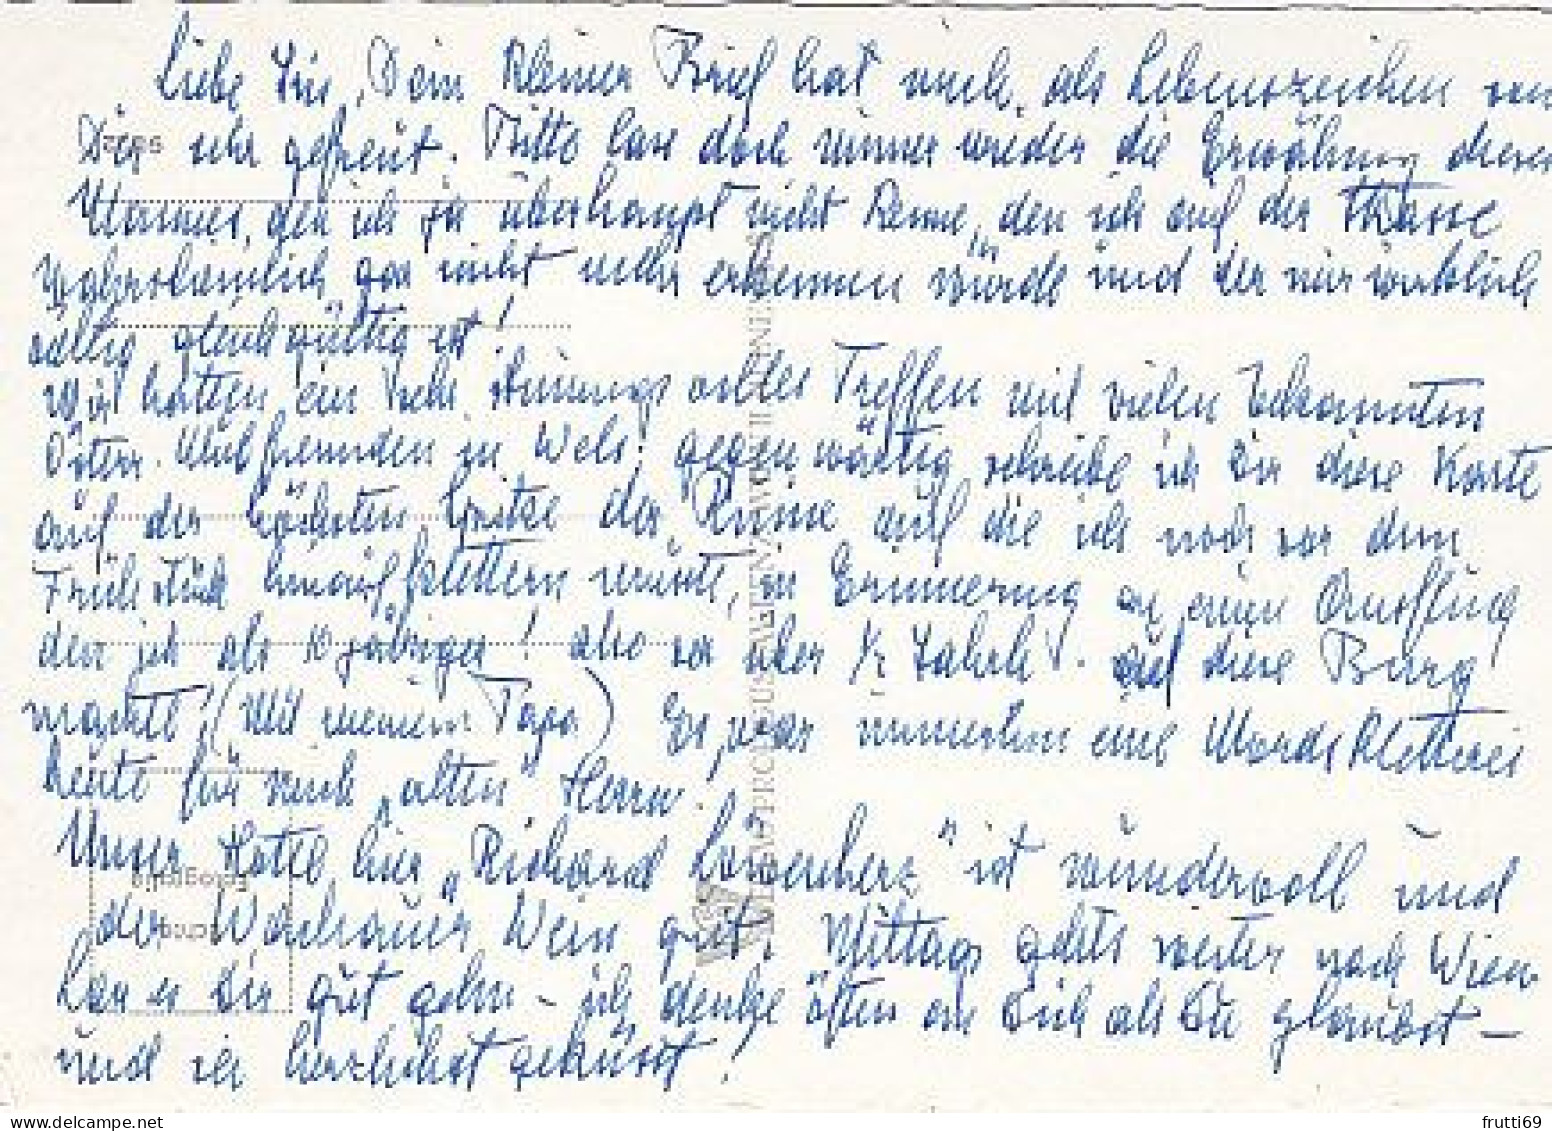 Liebe Iris, Dein kleiner Brief hat mich, als Lebenszeichen von
Dir sehr gefreut. Bitte lass doch immer wieder die Erwähnung dieses
Mannes, den ich ja überhaupt nicht kenne, den ich auf der Strasse
wahrscheinlich gar nicht mehr erkennen würde und der mir wirklich
völlig gleichgültig ist!
Wir hatten ein sehr stimmungsvolles Treffen mit vielen bekannten
Österr. Klubfreunden in Wels! gegenwärtig schreibe ich Dir diese Karte
auf der höchsten Spitze der Ruine auf die ich noch vor dem
Frühstück hinauf klettern musste, in Erinnerung an einen Ausflug
den ich als 10 jähriger! also vor über 1/2 Jahrh. auf diese Burg
machte! (Mit meinem Papa) Es war immerhin eine Mords Kletterei
heute für mich „alten" Herrn!
Unser Hotel hier „Richard Löwenherz" ist wundervoll und
der Wachauer Wein gut. Mittags gehts weiter nach Wien
Lass es Dir gut gehn - ich denke öfter an Dich als Du glaubst -
und sei herzlichst geküsst!
VERLAG
frutti69